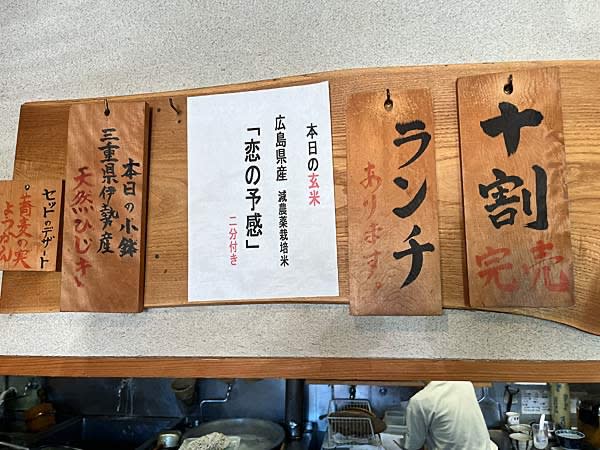 十割
完売
ランチ
あります。
本日の玄米
広島県産 減農薬栽培米
「恋の予感」
二分付き
本日の小鉢
三重県伊勢産
天然ひじき
セットのデザート
・蕎麦の実
ようかん